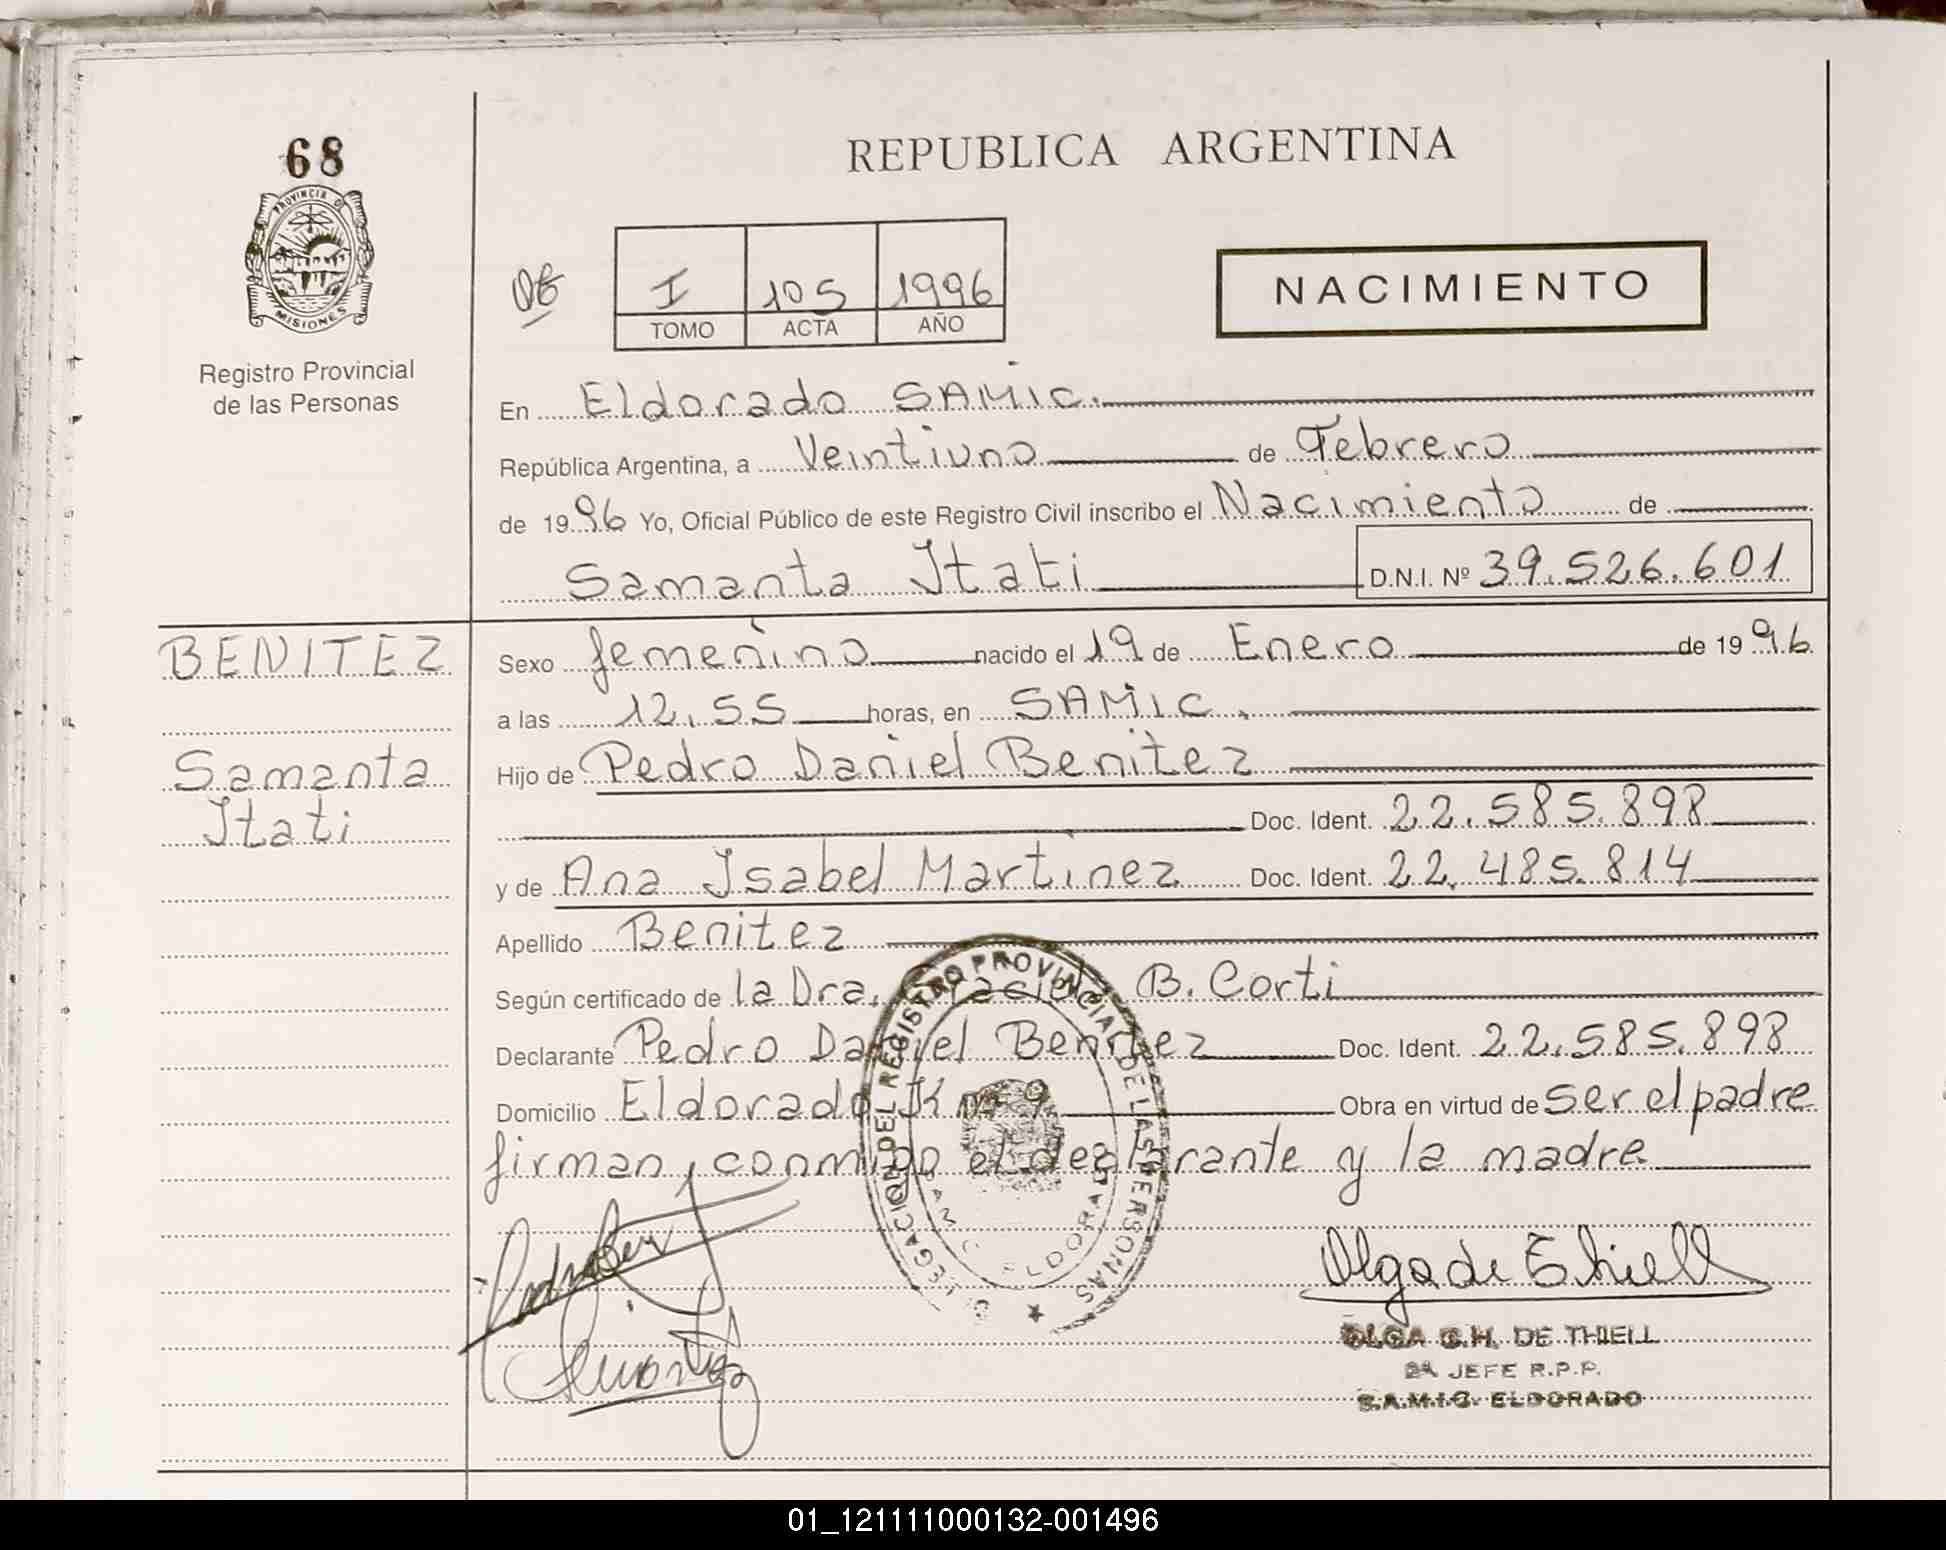 68
PROVINCIA DE
MISIONES
Registro Provincial
de las Personas
REPUBLICA ARGENTINA
I 105 1996
TOMO ACTA AÑO
NACIMIENTO
En Eldorado SAMIC.
República Argentina, a Veintiuno de Febrero
de 1996 Yo, Oficial Público de este Registro Civil inscribo el Nacimiento de
Samanta Itati D.N.I. Nº 39.526.601
BENITEZ
Samanta
Itati
Sexo femenino nacido el 19 de Enero de 1996
a las 12.55 horas, en SAMIC.
Hijo de Pedro Daniel Benitez
Doc. Ident. 22.585.898
y de Ana Isabel Martinez Doc. Ident. 22.485.814
Apellido Benitez
Según certificado de la Dra. Graciela B. Corti
Declarante Pedro Daniel Benitez Doc. Ident. 22.585.898
Domicilio Eldorado Km 9 Obra en virtud de ser el padre
firman conmigo el declarante y la madre
DELEGACION DEL REGISTRO PROVINCIAL DE LAS PERSONAS
ELDORADO
Olga de Thiell
OLGA G.H. DE THIELL
2ª JEFE R.P.P.
S.A.M.I.C. ELDORADO
01_121111000132-001496